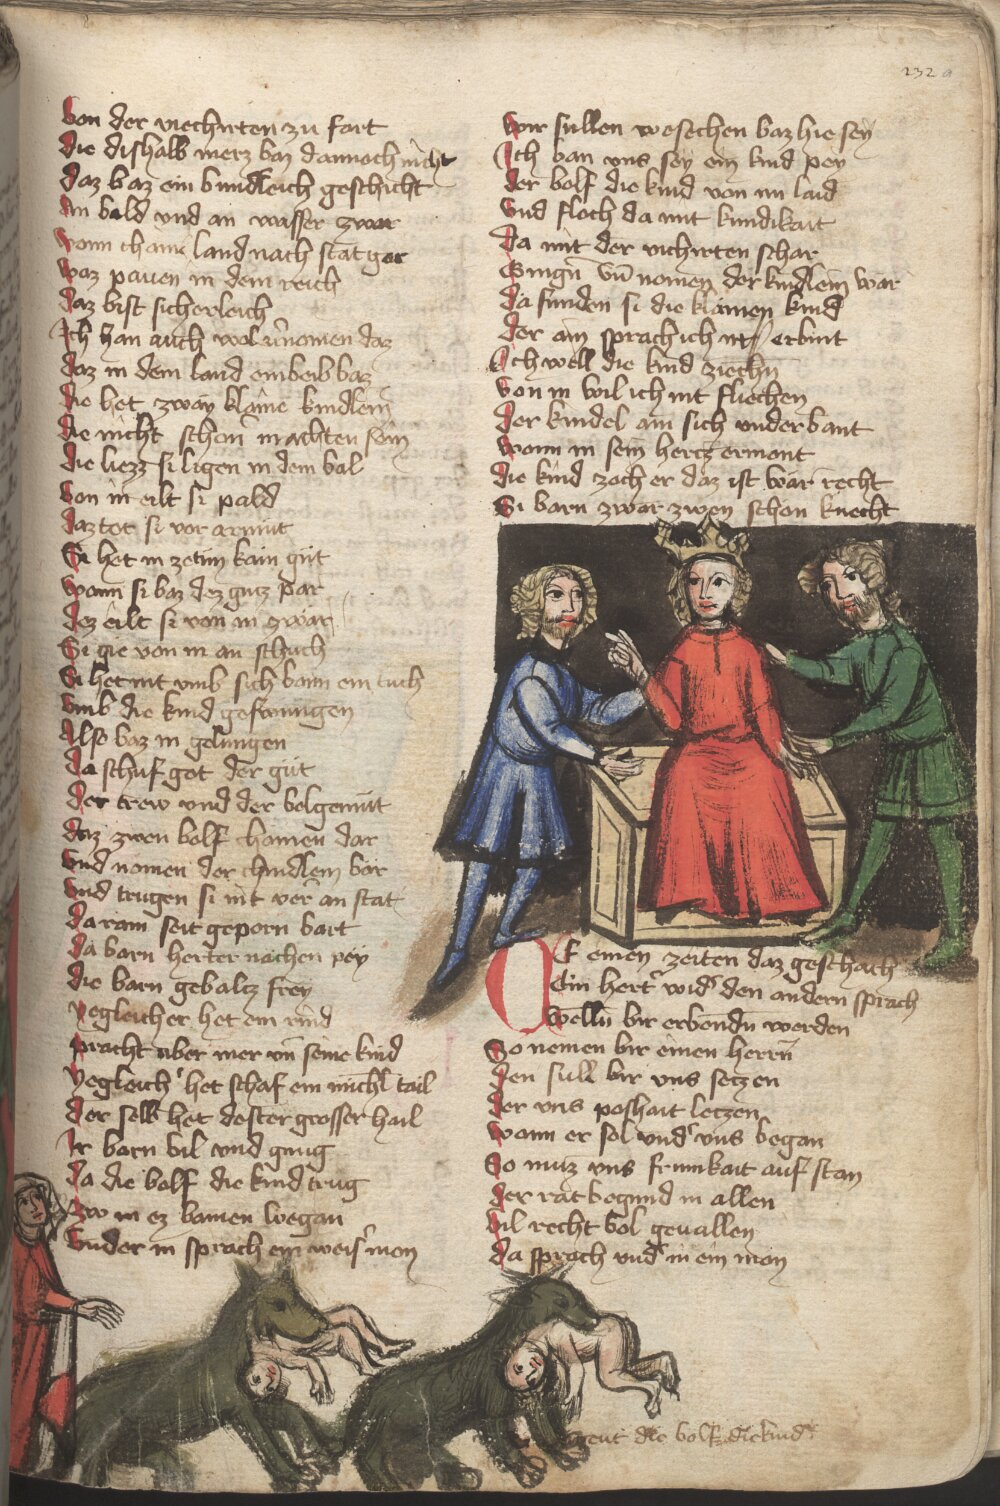 232a
von der viechirten zu fart
die dishalb merz baz dannoch nicht
daz baz ein bundleich geschicht
An bald vnd an wasser zwar
vonn chami land nach stat gar
waz paven in dem reich
daz bist sicherleich
Ich han auch wol v̂nomen daz
daz in dem land ein beib baz
die het zway klaine kindlein
die nicht schon machten sein
die liezz si ligen in dem bal
Von in eilt si pald
daz tet si vor armut
Si het in zetun kain gut
wann si baz dez gutz par
dez eilt si von in zwar
Si gie von in an schuch
Si het nit vmb sich bann ein tuch
vmb die kind geswungen
Also baz in gelungen
da schuf got der gut
der trew vnd der bolgemut
daz zwen bolf chamen dar
vnd namen der chindlein bar
vnd trugen si nit ver an stat
daran seit geporn bart
da barn herter nachen pey
die barn gebaltz frey
yegleicher het ein rind
pracht uber mer vn̄ seine kind
yegleich' het schaf ein michl tail
der selb het dester grosser hail
Ir barn vil vnd gnug
da die bolf die kind trug
zw in ez bamen began
vnder in sprach ein weis' man
wir sullen vesechen baz hie sey
Ich ban vns sey ein kind pey
der bolf die kind von im laid
vnd floch da mit kundikait
da mit der vichirten schar
Gingn vn̄ nomen der kindlein war
da funden si die klainen kind
der ain sprach ich nit erbint
Ich well die kind ziechn
von in wil ich nit fliechen
der kindel ain sich vnderbant
wann in sein hercz ermant
die kind zoch er daz ist war recht
Si barn zwar zwen schon knecht
Ze einen zeiten daz geschach
Ein hert' wid' den andern sprach
Welln bir erbondn werden
So nemen bir einen herrn
den sull bir vns setzen
der vns poshait letzen
wann er sol vnd' vns began
So muz vns frumkait auf stan
der rat begund in allen
vil recht bol geuallen
da sprach vnd' in ein man
die bolf die kind